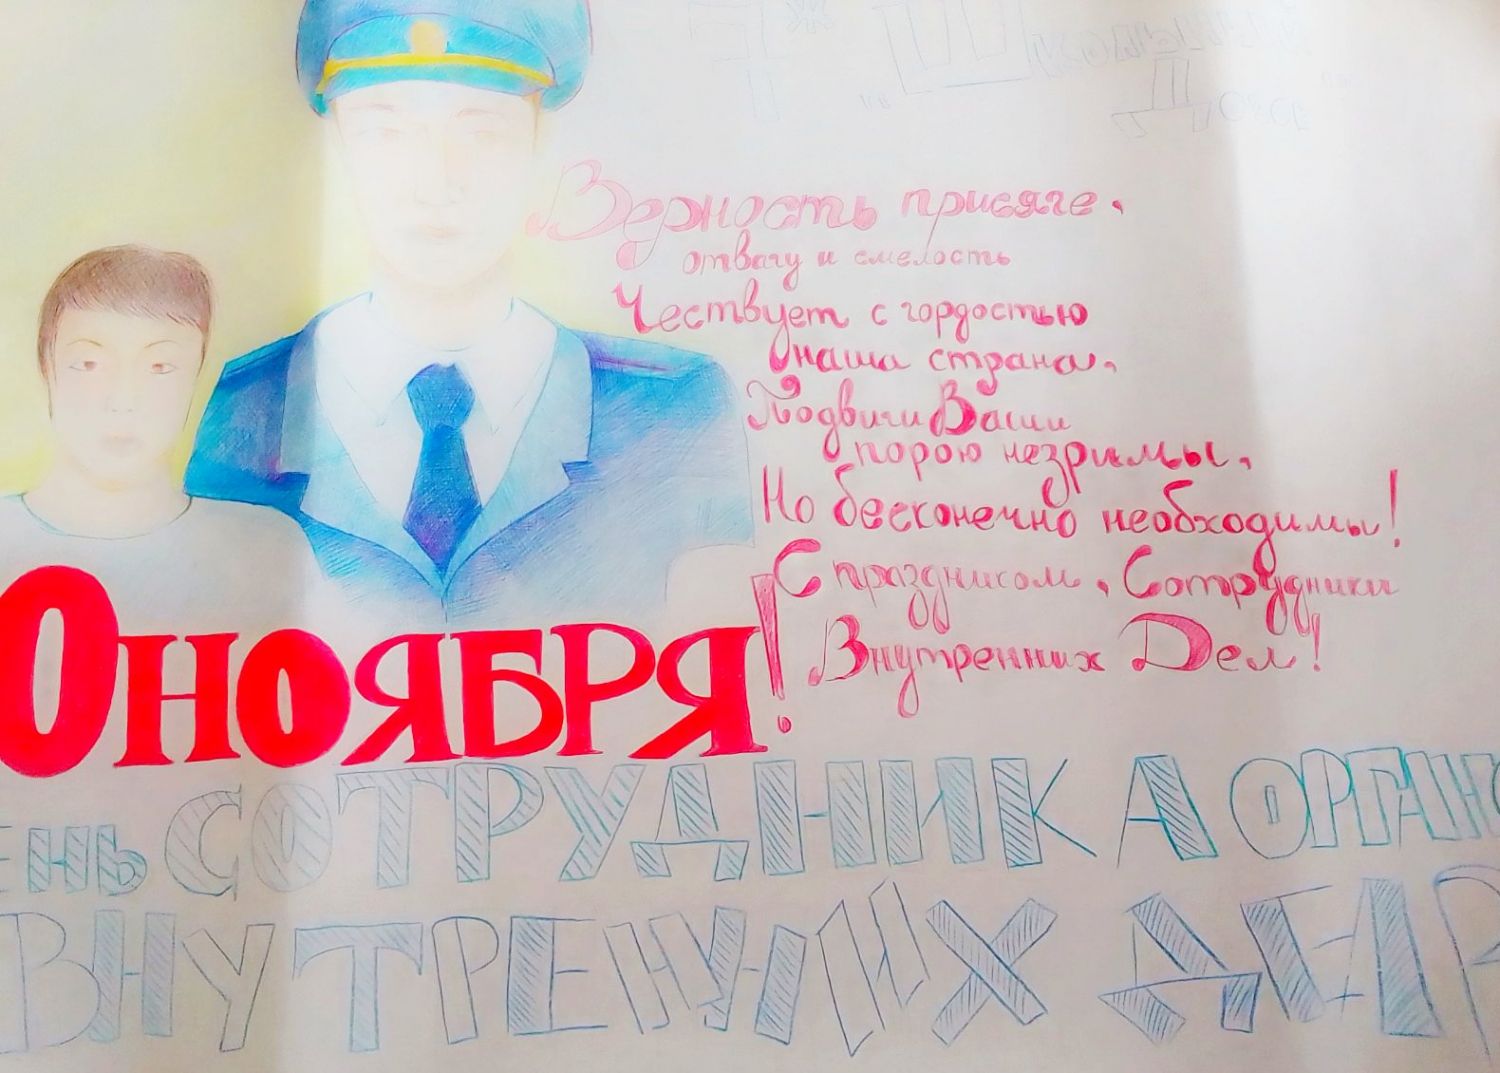 7 "Ж"
"Школьный
Досье"
Верность присяге,
отвагу и смелость
Чествует с гордостью
наша страна,
Подвиги Ваши
порою незримы,
Но бесконечно необходимы!
С праздником, Сотрудники
Внутренних Дел!
0 НОЯБРЯ!
ЕНЬ СОТРУДНИКА ОРГАНО
ВНУТРЕННИХ